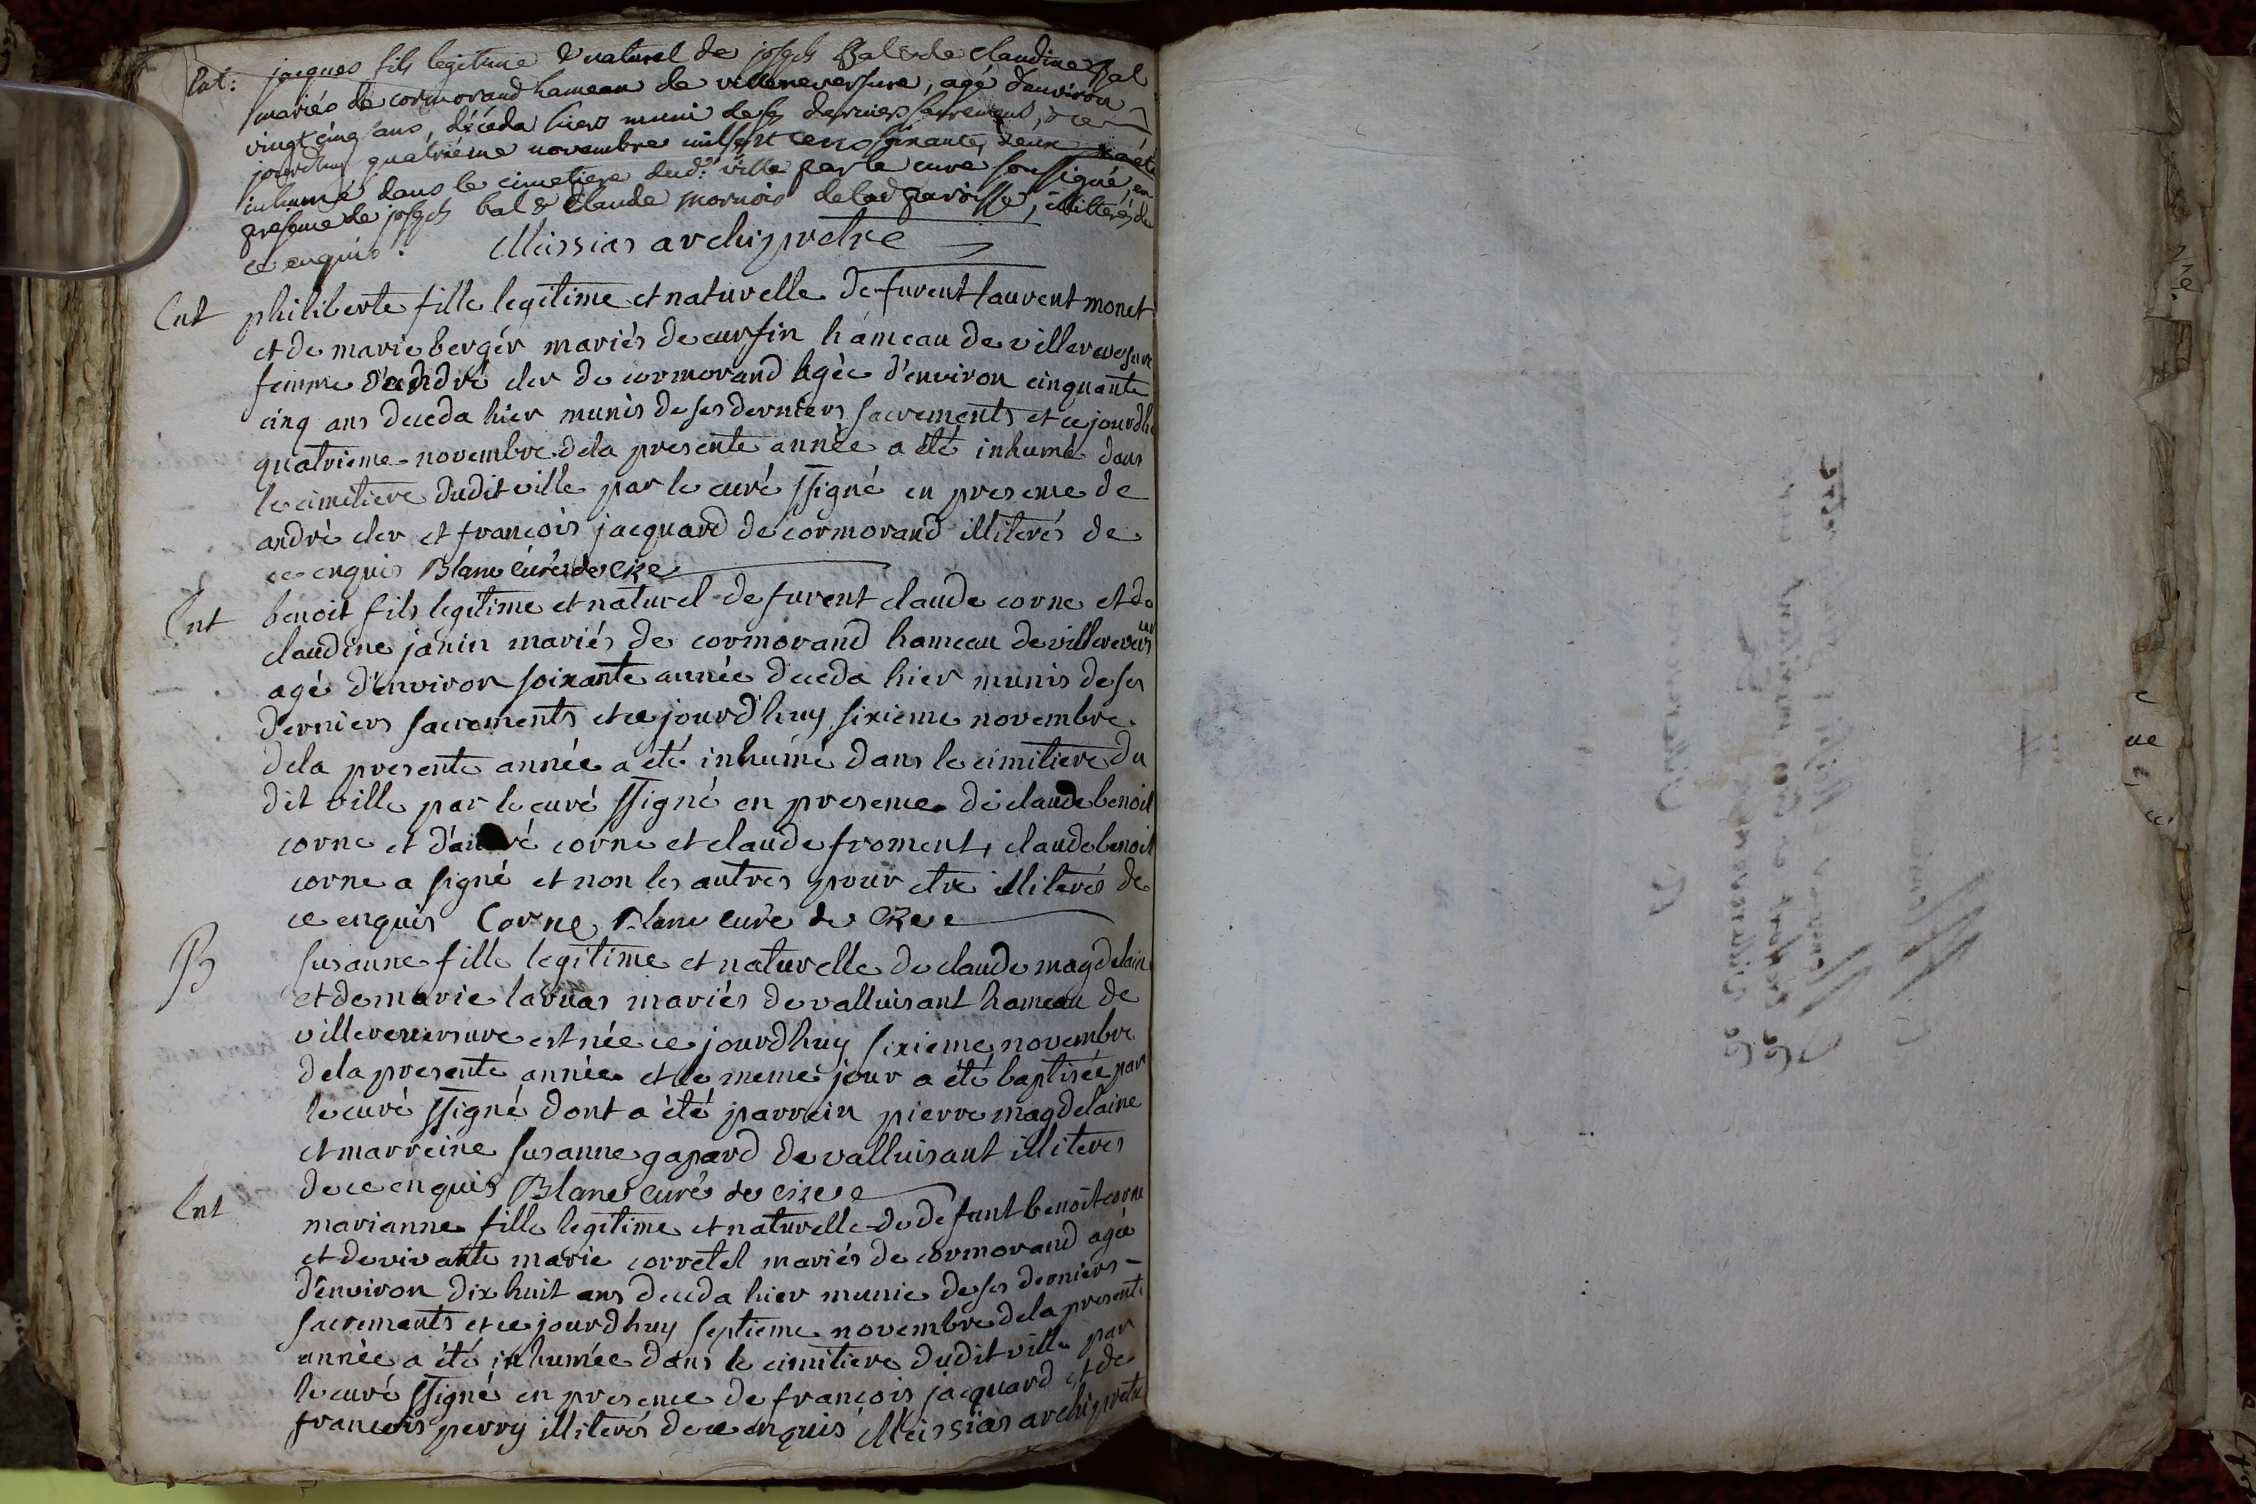 Ent: jacques fils legitime & naturel de joseph Bal & de claudine Bal
mariés de cormorand hameau de villereversure, agé d'environ
vingt cinq ans, décéda hier muni de ses derniers sacrements, & ce
jourdhuy quatriéme novembre mil sept cens soixante, deux a été
inhumé dans le cimetiere dud.t ville par le curé soussigné, en
presence de joseph bal & Claude mornoir de lad paroisse, illitterés de
ce enquis. Messias archiprêtre
Ent philiberte fille legitime et naturelle de furent laurent monet
et de marie bergér mariés de cursin hameau de villereversure
femme d'andré cler de cormorand agèe d'environ cinquante
cinq ans deceda hier munis de ses derniers sacrements et ce jourdh
quatrieme novembre dela presente année a été inhumé dans
le cimetiere dudit ville par le curé ssigné en presence de
andrè cler et françois jacquard de cormorand illiterés de
ce enquis Blanc Curé de Cize
Ent benoit fils legitime et naturel de furent claude corne et de
claudine janin mariés de cormorand hameau de villerevers ur
agé d'environ soixante année deceda hier munis de ses
derniers sacrements et ce jourd'huy sixieme novembre
dela presente année a été inhumé dans le cimitiere du
dit ville par le curé ssigné en presence de claude benoit
corne et d'andré corne et claude froment, claude benoit
corne a signé et non les autres pour etre illiterés de
ce enquis Corne Blanc curé de Cize
B susanne fille legitime et naturelle de claude magdelain
et de marie laruas mariés de valluisant hameau de
villereversure est née ce jourdhuy sixieme novembre
dela presente année et le meme jour a été baptisée par
le curé ssigné dont a été parrein pierre magdelaine
et marreine susanne gapard de valluisant illiteres
de ce enquis Blanc curé de cize
Ent marianne fille legitime et naturelle de défunt benoit corne
et de vivante marie corretel mariés de cormorand agée
d'environ dix huit ans deceda hier munie de ses derniers
sacrements et ce jourdhuy septieme novembre dela presente
année a été inhumée dans le cimitiere dudit ville par
le curé ssigné en presence de françois jacquard et de
francois perry illiterés de ce enquis Messias archiprêtre